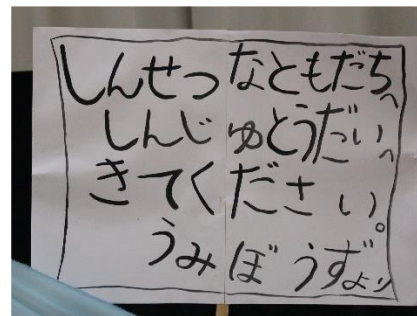 しんせつなともだちへ
しんじゅとうだいへ
きてください。
うみぼうずより